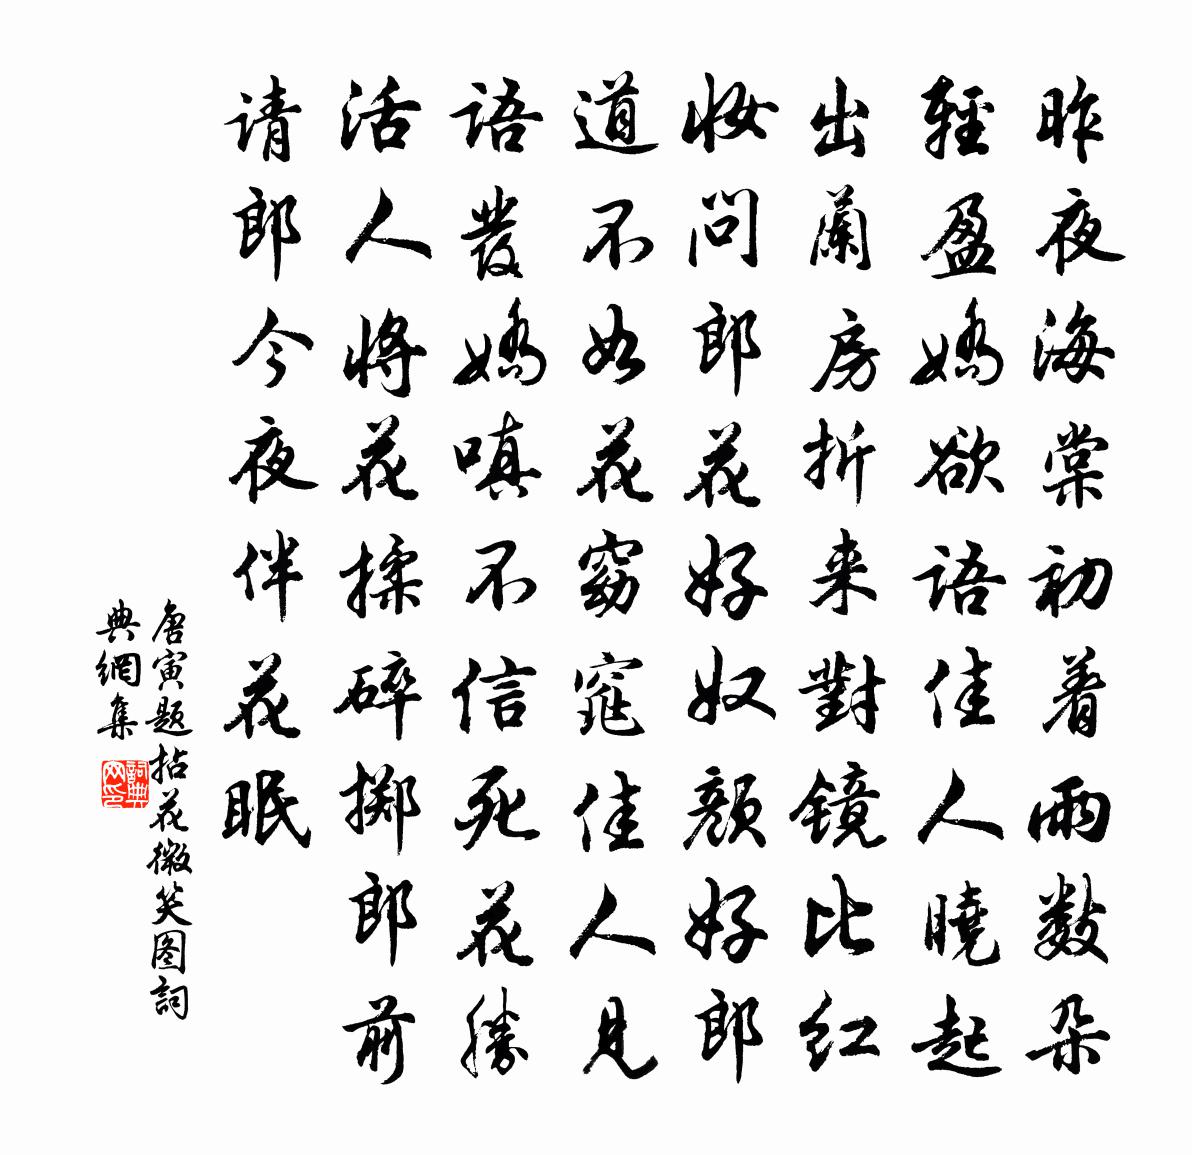 昨夜海棠初着雨数朵
輕盈嬌欲語佳人曉起
出蘭房折来對镜比红
妝问郎花好奴颜好郎
道不如花窈窕佳人见
語發嬌嗔不信死花勝
活人将花揉碎掷郎前
请郎今夜伴花眠
唐寅题拈花微笑图詞
典網集
詞典
网印